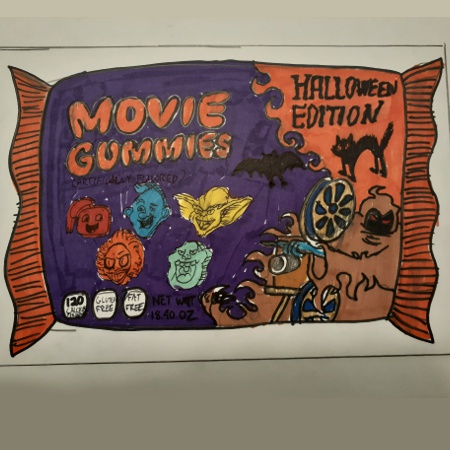 MOVIE
GUMMIES
ARTIFICIALLY FLAVORED
HALLOWEEN
EDITION
120
GLUTEN
FREE
FAT
FREE
NET WGT